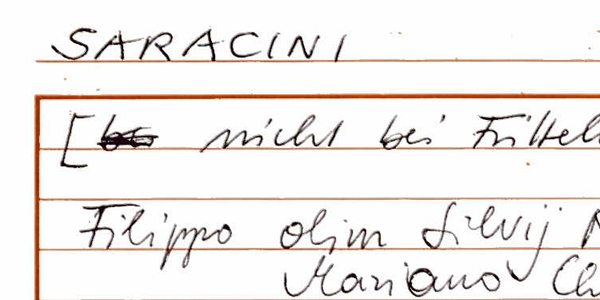 SARACINI
[ nicht bei Fittel
Filippo olim Silvij
Mariano Ch